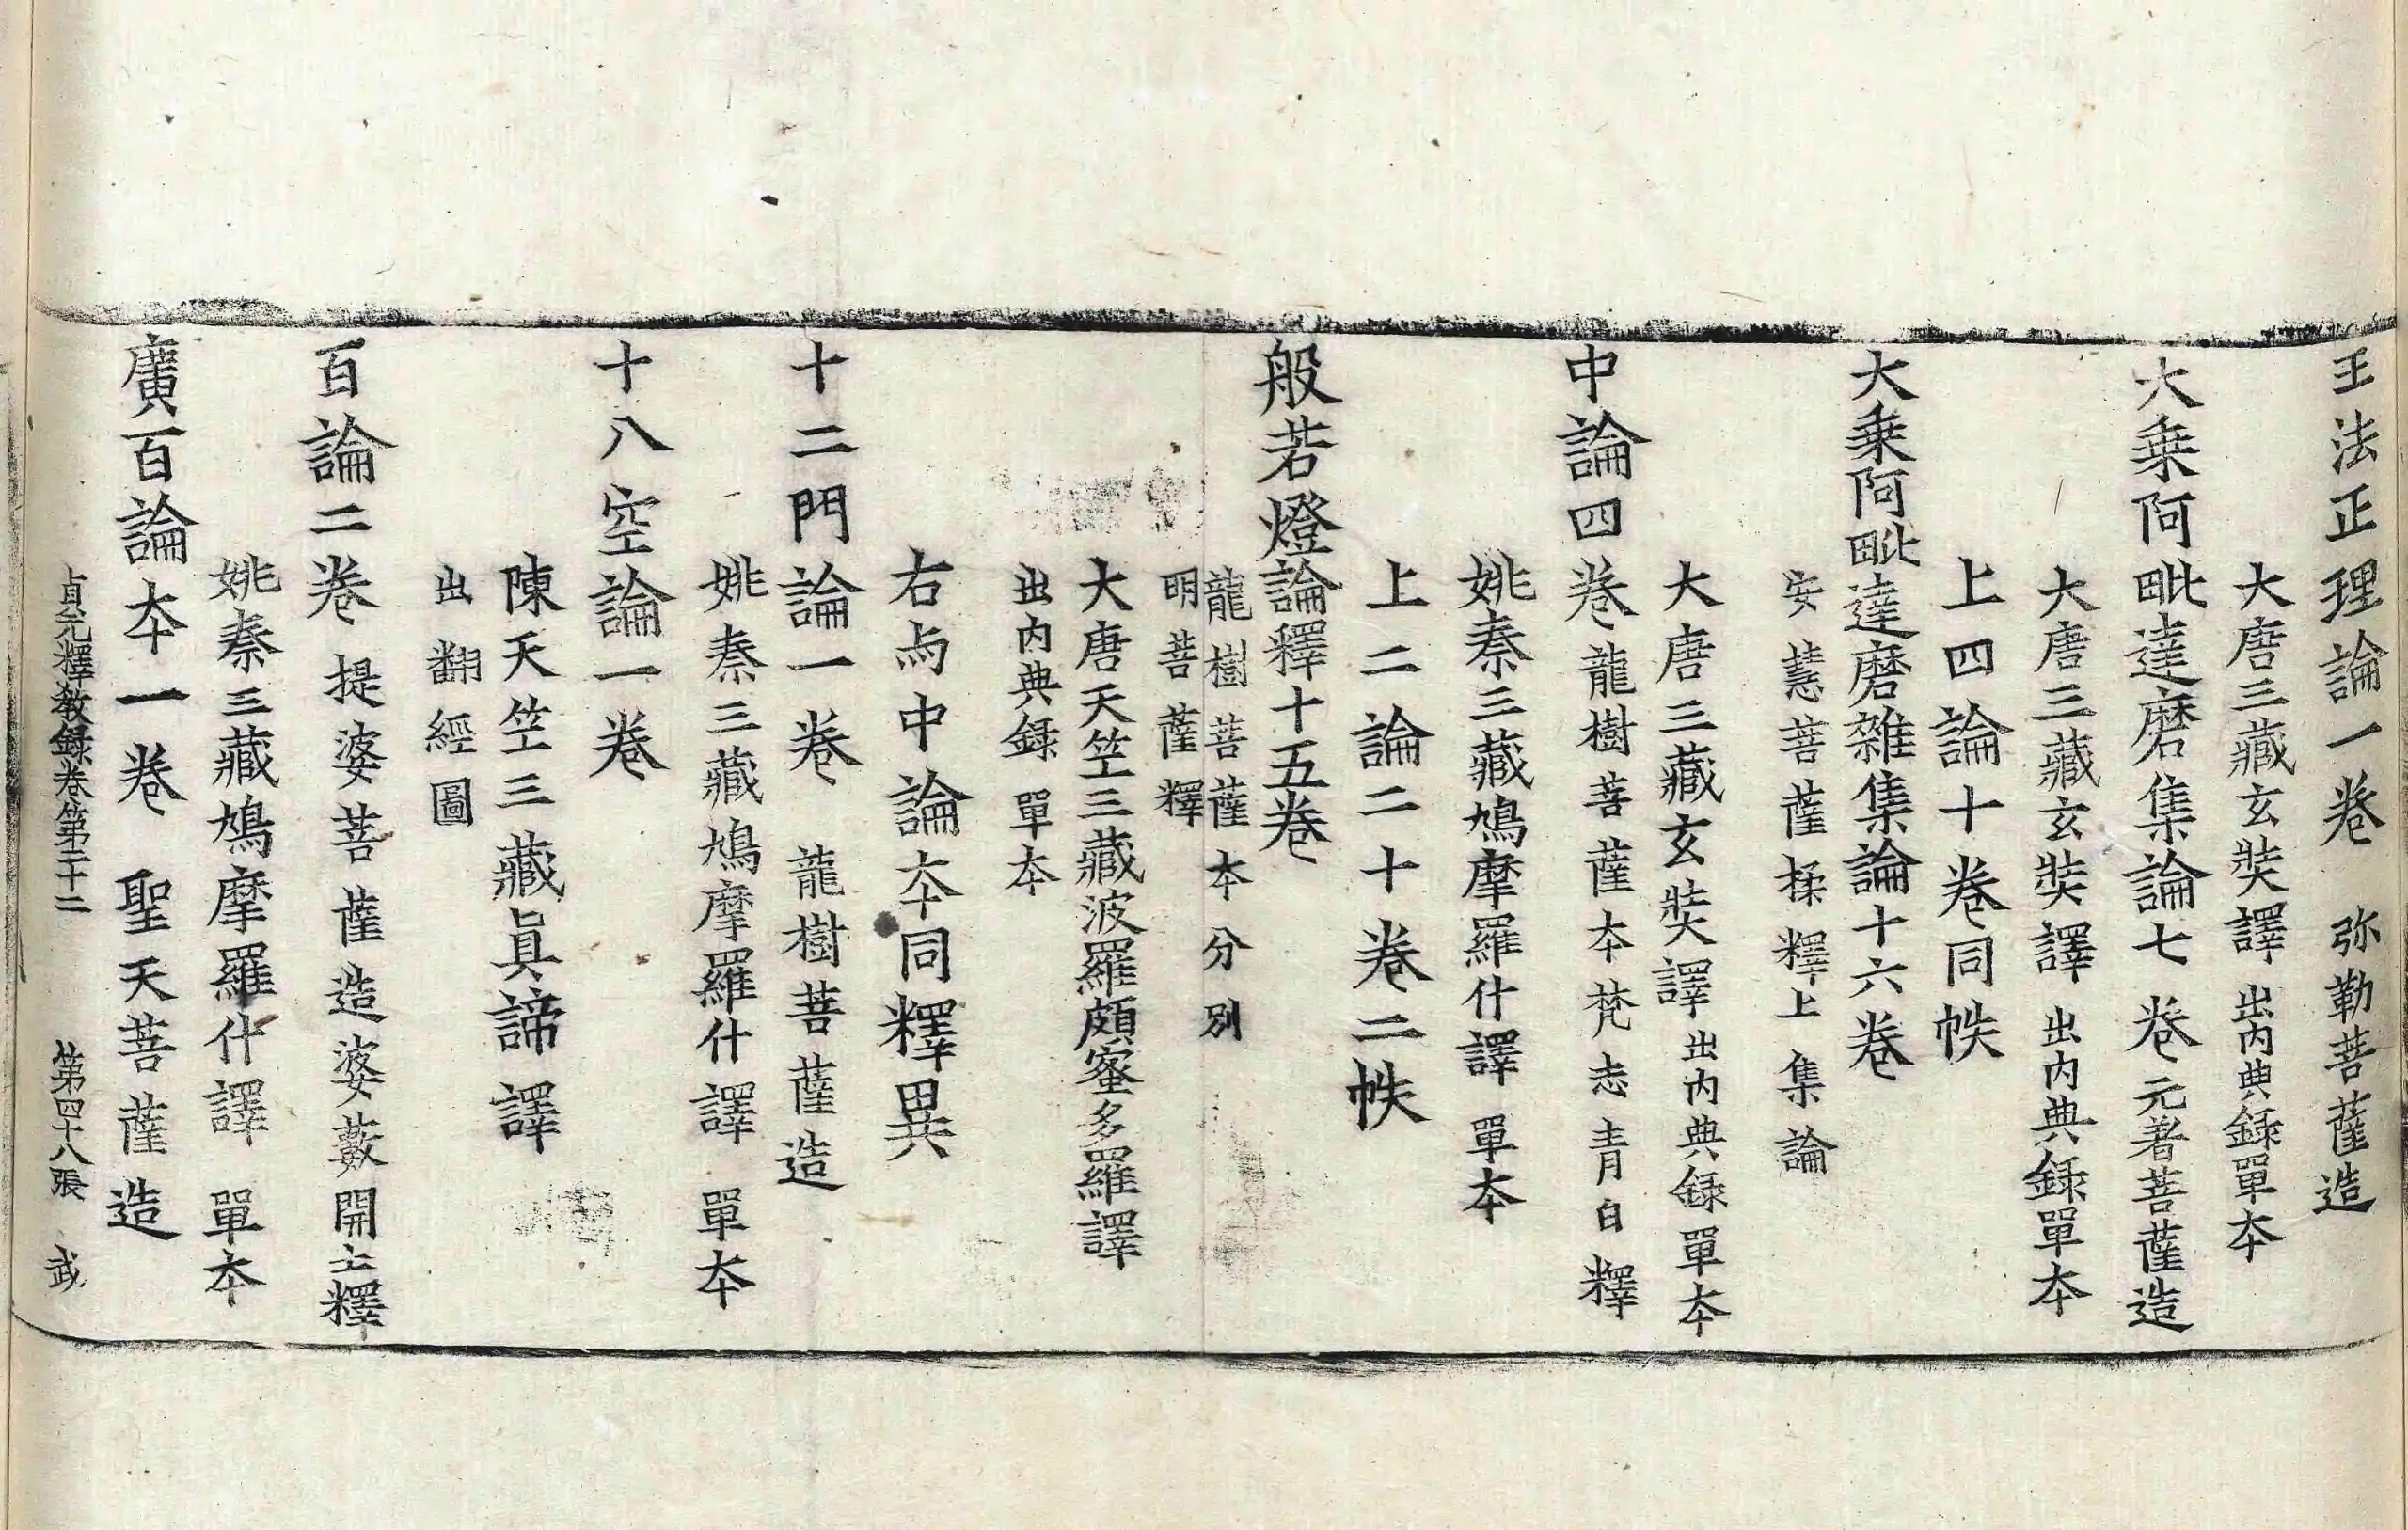 王法正理論一卷 弥勒菩薩造
大唐三藏玄奘譯 出內典錄單夲
大乗阿毗達磨集論七卷 无著菩薩造
大唐三藏玄奘譯 出內典錄單夲
上四論十卷同帙
大乗阿毗達磨雜集論十六卷
安慧菩薩揉釋上集論
大唐三藏玄奘譯 出內典錄單夲
中論四卷 龍樹菩薩夲梵志青目釋
姚秦三藏鳩摩羅什譯 單夲
上二論二十卷二帙
般若燈論釋十五卷
龍樹菩薩夲分別
明菩薩釋
大唐天竺三藏波羅頗蜜多羅譯
出內典錄單夲
右与中論夲同釋異
十二門論一卷 龍樹菩薩造
姚秦三藏鳩摩羅什譯 單夲
十八空論一卷
陳天竺三藏眞諦譯
出翻經圖
百論二卷 提婆菩薩造婆藪開士釋
姚秦三藏鳩摩羅什譯 單夲
廣百論夲一卷 聖天菩薩造
貞元釋教錄卷第二十二 第四十八張 武